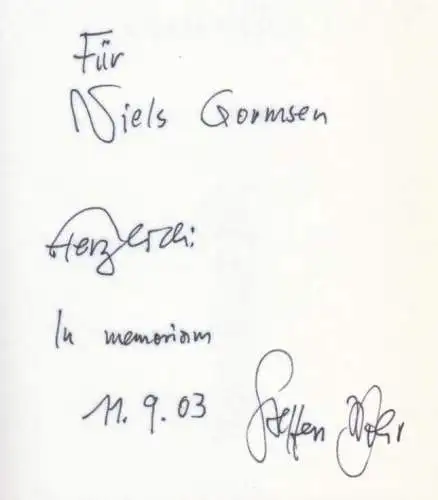 Für
Niels Gormsen
Herzlich:
In memoriam
11. 9. 03
Steffen Mohr